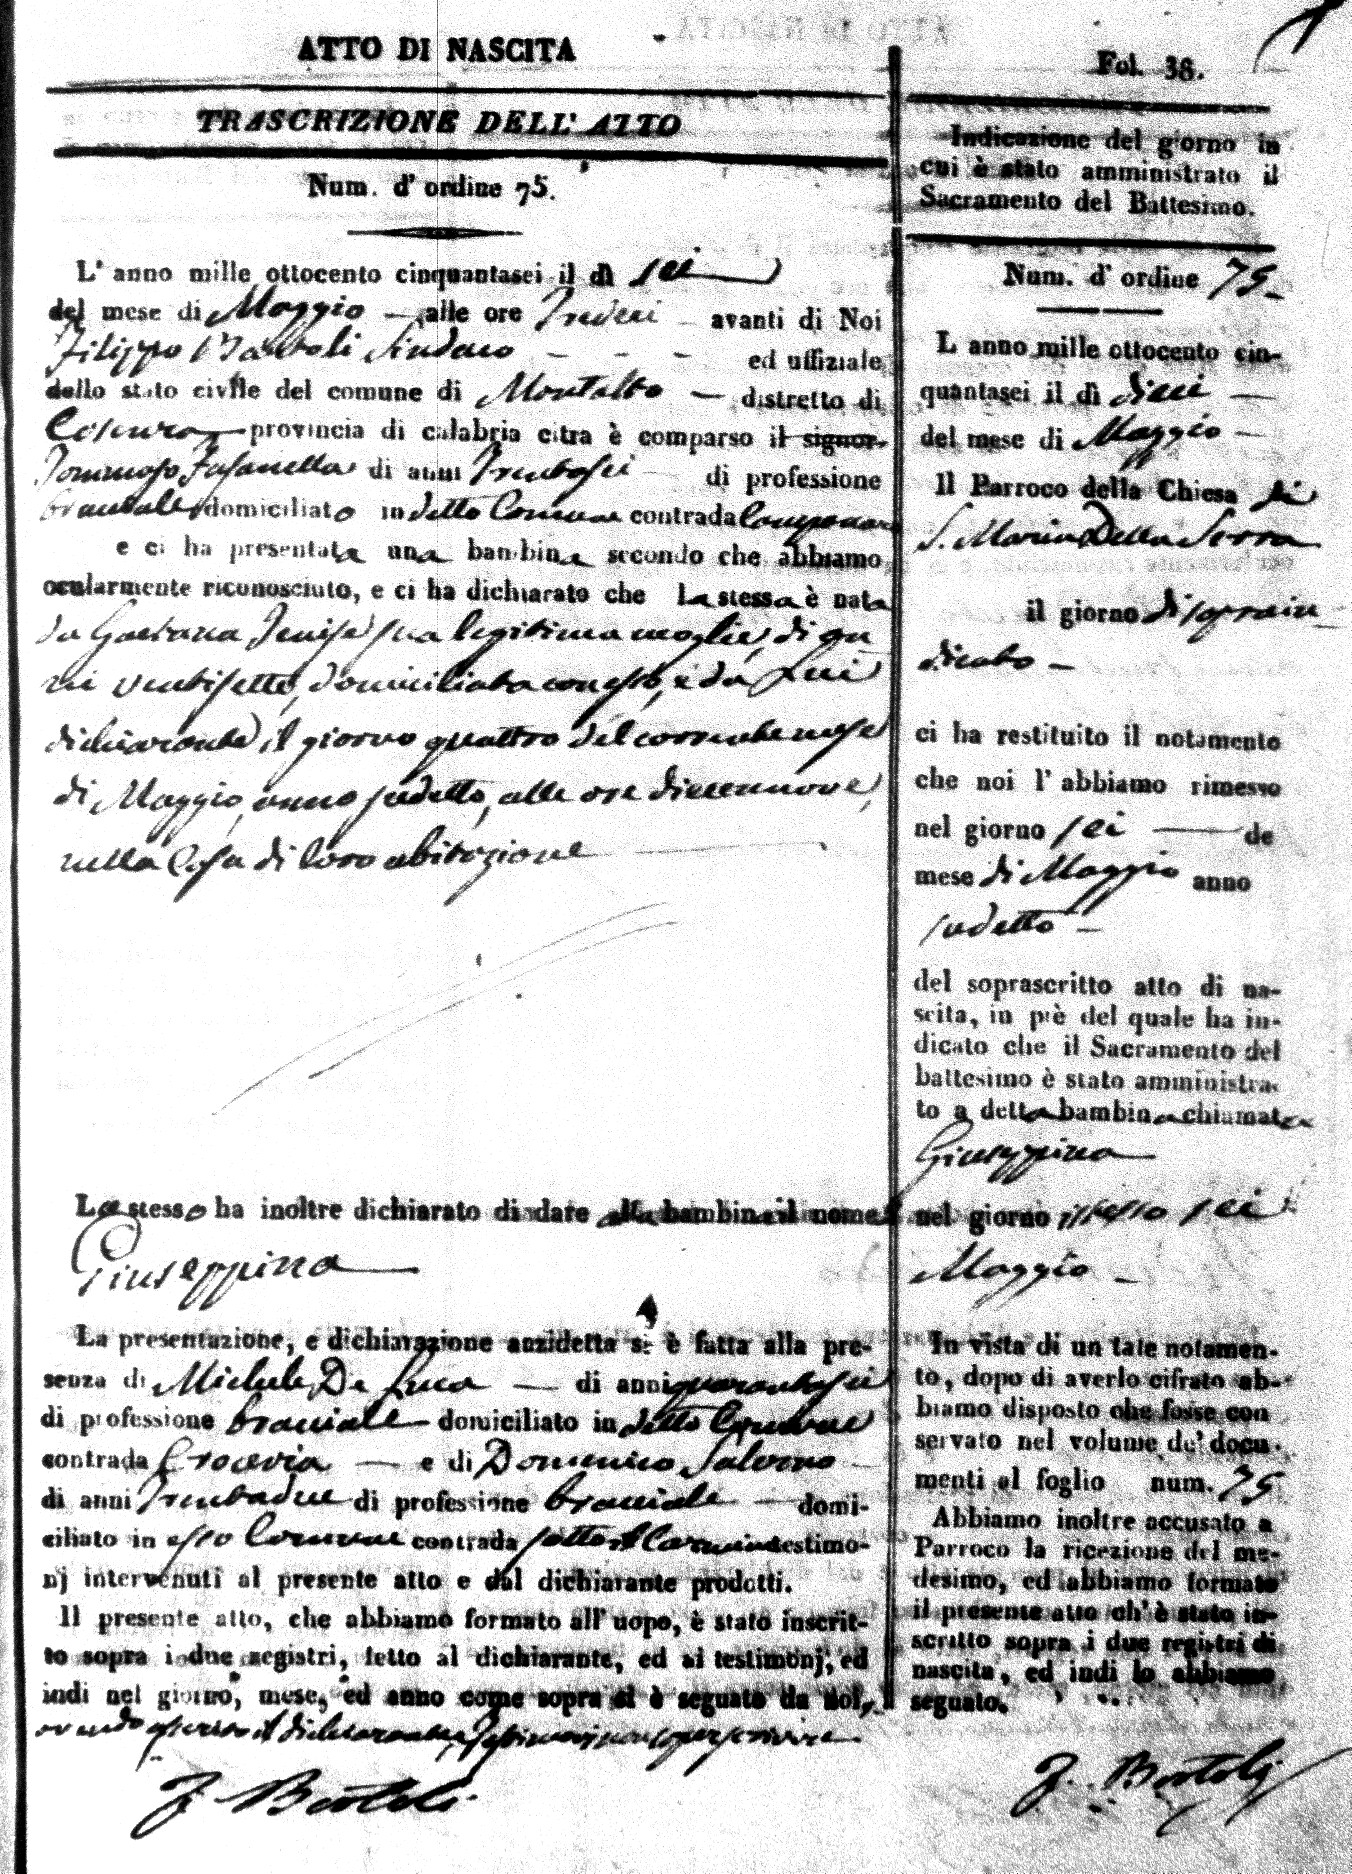 ATTO DI NASCITA
TRASCRIZIONE DELL' ATTO
Num. d' ordine 75.
L' anno mille ottocento cinquantasei il dì sei
del mese di Maggio — alle ore Tredeci — avanti di Noi
Filippo Bartoli Sindaco — — — ed uffiziale
dello stato civile del comune di Montalto — distretto di
Cosenza provincia di calabria citra è comparso il signor
Tommaso Fasanella di anni Trentasei — di professione
bracciale domiciliato in detto Comune contrada
e ci ha presentata una bambina secondo che abbiamo
ocularmente riconosciuto, e ci ha dichiarato che la stessa è nata
da Gaetana Tenise sua legittima moglie, di an
ni ventisette, domiciliata con esso, e da Lui
dichiarante il giorno quattro del corrente mese
di Maggio, anno sudetto, alle ore diecennove,
nella Casa di loro abitazione
Lo stesso ha inoltre dichiarato di dare alla bambina il nome
Giuseppina
La presentazione, e dichiarazione anzidetta si è fatta alla pre-
senza di Michele De Luca — di anni quarantasei
di professione bracciale domiciliato in detto Comune
contrada Crocevia — e di Domenico Salerno
di anni Trentadue di professione bracciale — domi-
ciliato in esso Comune contrada sotto il Carmine testimo-
nj intervenuti al presente atto e dal dichiarante prodotti.
Il presente atto, che abbiamo formato all' uopo, è stato inscrit-
to sopra i due registri, letto al dichiarante, ed ai testimonj, ed
indi nel giorno, mese, ed anno come sopra si è segnato da noi,
avendo asserito il dichiarante, e Testimonj non saper scrivere
F. Bartoli
Fol. 38.
Indicazione del giorno in
cui è stato amministrato il
Sacramento del Battesimo.
Num. d' ordine 75
L anno mille ottocento cin-
quantasei il dì dieci —
del mese di Maggio —
Il Parroco della Chiesa di
S. Maria Della Serra
il giorno di sopra in
dicato —
ci ha restituito il notamento
che noi l' abbiamo rimesso
nel giorno sei — de
mese di Maggio anno
sudetto —
del soprascritto atto di na-
scita, in piè del quale ha in-
dicato che il Sacramento del
battesimo è stato amministra-
to a detta bambina chiamata
Giuseppina
nel giorno istesso sei
Maggio —
In vista di un tale notamen-
to, dopo di averlo cifrato ab-
biamo disposto che fosse con
servato nel volume de' docu-
menti al foglio num. 75
Abbiamo inoltre accusato a
Parroco la ricezione del me-
desimo, ed abbiamo formato
il presente atto ch' è stato in-
scritto sopra i due registri di
nascita, ed indi lo abbiamo
segnato.
F. Bartoli